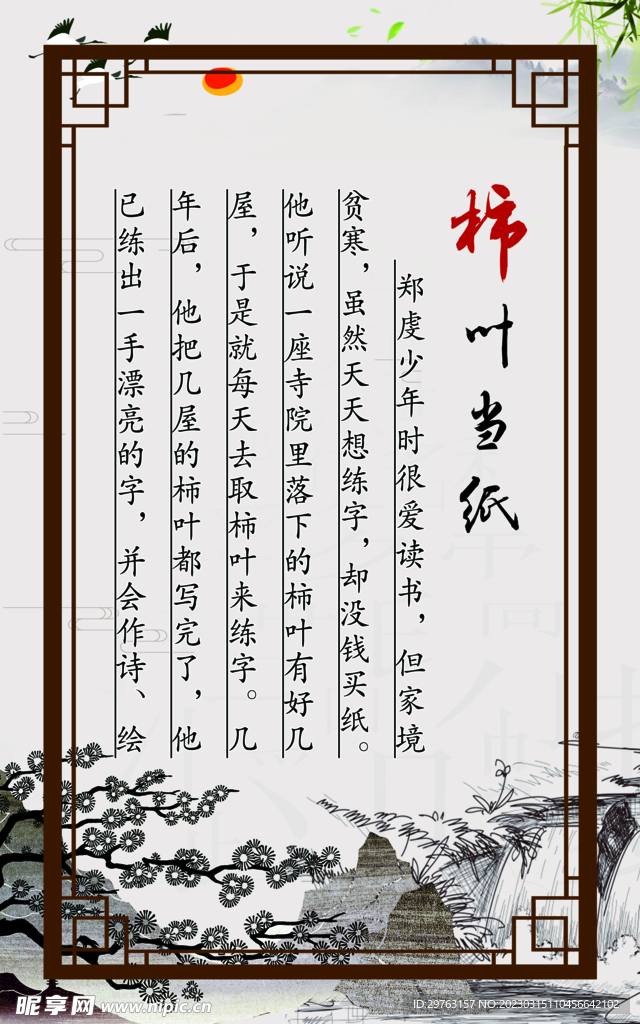 柿叶当纸
郑虔少年时很爱读书，但家境
贫寒，虽然天天想练字，却没钱买纸。
他听说一座寺院里落下的柿叶有好几
屋，于是就每天去取柿叶来练字。几
年后，他把几屋的柿叶都写完了，他
已练出一手漂亮的字，并会作诗、绘
昵享网 www.nipic.cn
ID:29763157 NO:20230315110456642102